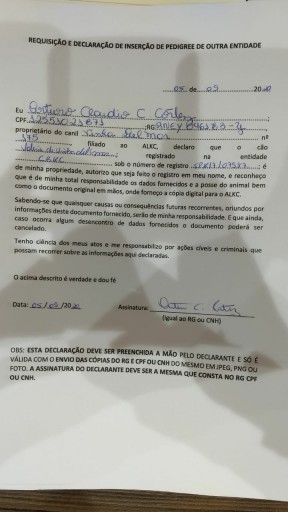 REQUISIÇÃO E DECLARAÇÃO DE INSERÇÃO DE PEDIGREE DE OUTRA ENTIDADE
05 de 09 2020
Eu Arturo Claudio C.
CPF RG
proprietário do canil nº
175 filiado ao ALKC, declaro que o cão
registrado na entidade
CBKC sob o número de registro ; é
de minha propriedade, autorizo que seja feito o registro em meu nome, e reconheço
que é de minha total responsabilidade os dados fornecidos e a posse do animal bem
como o documento original em mãos, onde forneço a cópia digital para a ALKC.
Sabendo-se que quaisquer causas ou consequências futuras recorrentes, oriundos por
informações deste documento fornecido, serão de minha responsabilidade. E que ainda,
caso ocorra algum desencontro de dados fornecidos o documento poderá ser
cancelado.
Tenho ciência dos meus atos e me responsabilizo por ações cíveis e criminais que
possam recorrer sobre as informações aqui declaradas.
O acima descrito é verdade e dou fé
Data: 05/09/2020 Assinatura:
(Igual ao RG ou CNH)
OBS: ESTA DECLARAÇÃO DEVE SER PREENCHIDA A MÃO PELO DECLARANTE E SÓ É
VÁLIDA COM O ENVIO DAS CÓPIAS DO RG E CPF OU CNH DO MESMO EM JPEG, PNG OU
FOTO. A ASSINATURA DO DECLARANTE DEVE SER A MESMA QUE CONSTA NO RG CPF
OU CNH.